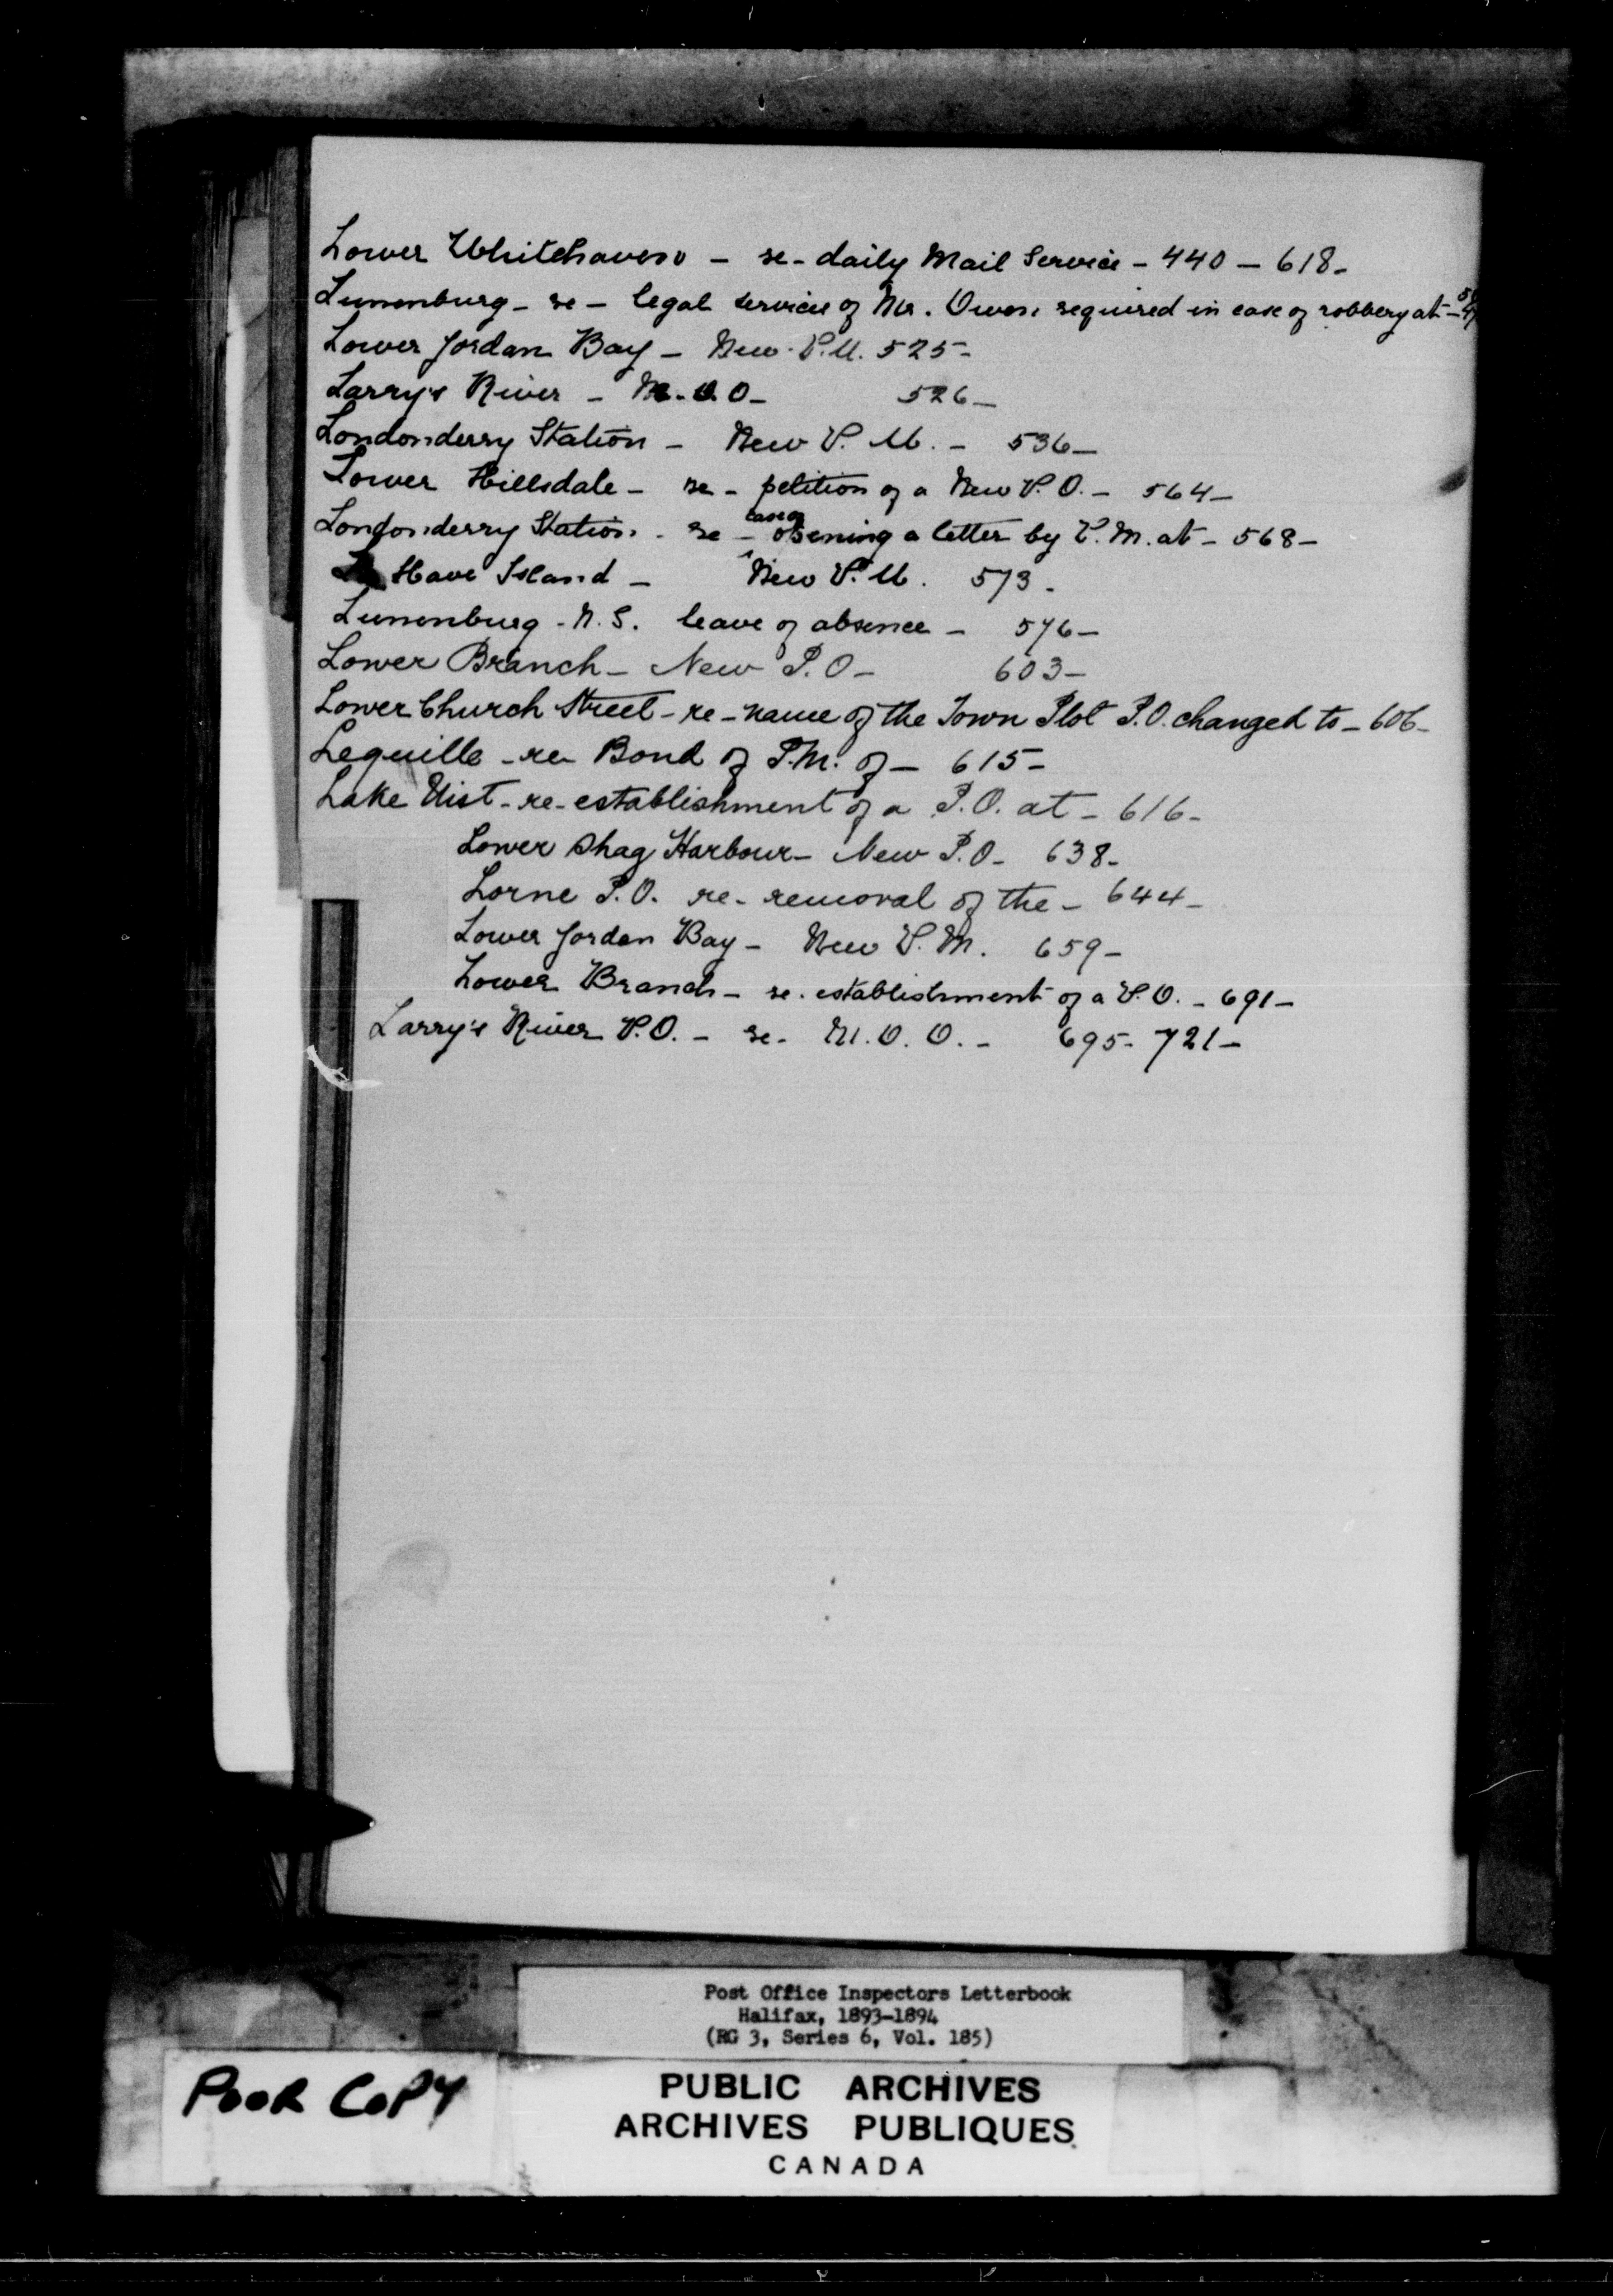 Lower Whitehaven - re - daily Mail Service - 440 - 618 -
Lunenburg - re - legal services of Mr. Owen required in case of robbery at -
Lower Jordan Bay - New P.M. 525 -
Larry's River - M.O.O - 526 -
Londonderry Station - New P.M. - 536 -
Lower Hillsdale - re - petition of a New P.O. - 564 -
Londonderry Station - re - case of opening a letter by P.M. at - 568 -
La Have Island - New P.M. 573 -
Lunenburg - N.S. leave of absence - 576 -
Lower Branch - New P.O - 603 -
Lower Church Street - re - name of the Town Plot P.O. changed to - 606 -
Lequille - re Bond of P.M. of - 615 -
Lake Uist - re - establishment of a P.O. at - 616 -
Lower Shag Harbour - New P.O - 638 -
Lorne P.O. re - removal of the - 644 -
Lower Jordan Bay - New P.M. 659 -
Lower Branch - re - establishment of a P.O. - 691 -
Larry's River P.O. - re - M.O.O. - 695 - 721 -
Post Office Inspectors Letterbook
Halifax, 1893-1894
(RG 3, Series 6, Vol. 185)
POOR COPY
PUBLIC ARCHIVES
ARCHIVES PUBLIQUES
CANADA